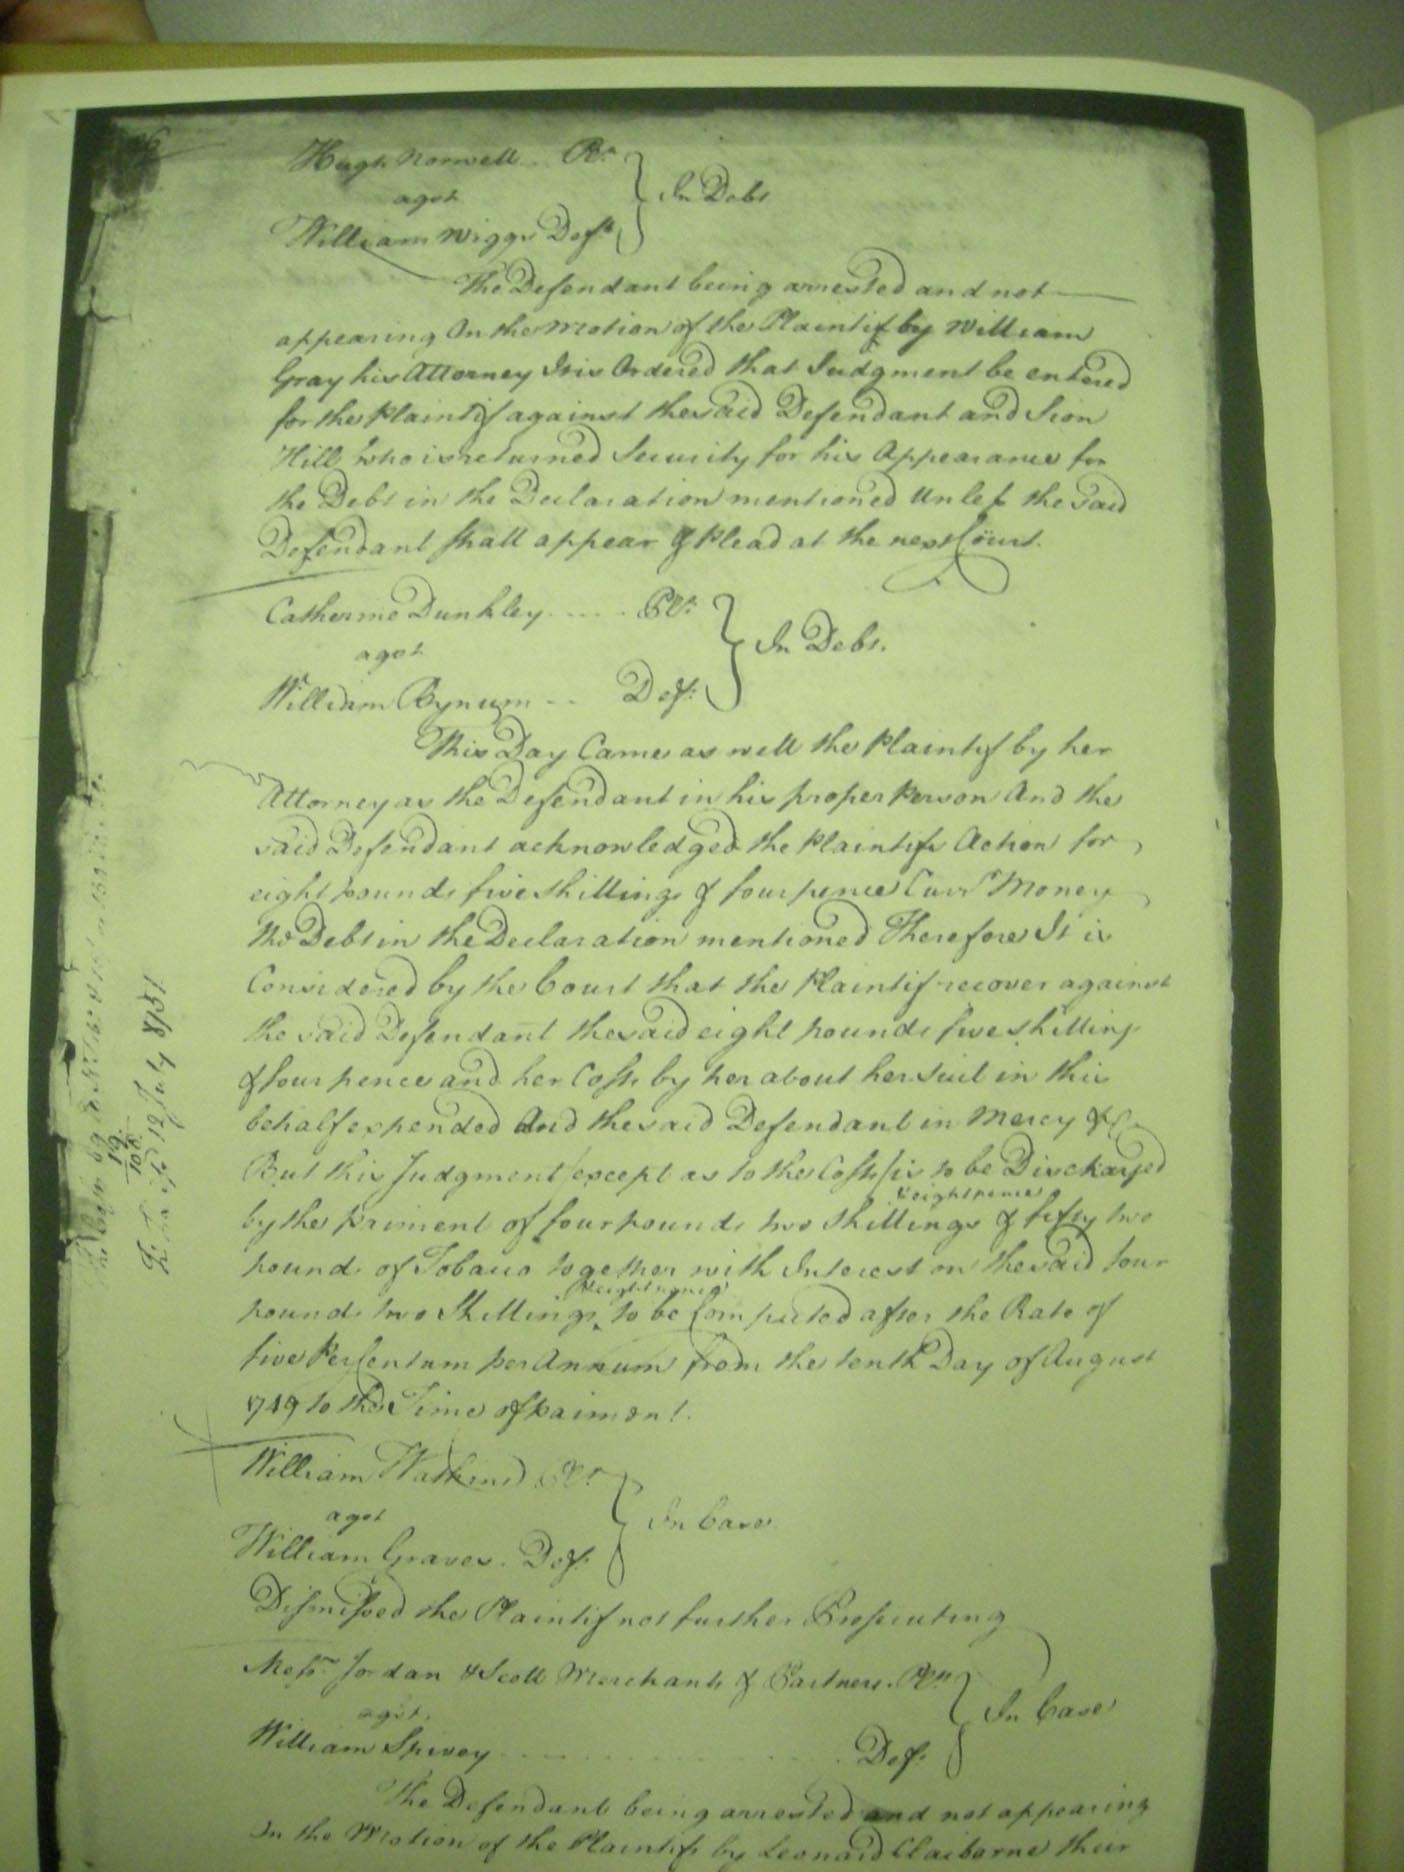 Hugh Norwell .. Plt.
agst
William Wiggs Deft
In Debt
The Defendant being arrested and not
appearing On the Motion of the Plaintif by William
Gray his Attorney It is Ordered that Judgment be entered
for the Plaintif against the said Defendant and Sion
Hill who is returned Security for his Appearance for
the Debt in the Declaration mentioned Unless the said
Defendant shall appear & Plead at the next Court.
Catherine Dunkley ..... Plt.
agst
William Bynum .. Def:
In Debt.
This Day Came as well the Plaintif by her
Attorney as the Defendant in his proper Person And the
said Defendant acknowledged the Plaintifs Action for
eight pounds five shillings & four pence Curr.t Money
the Debt in the Declaration mentioned Therefore It is
Considered by the Court that the Plaintif recover against
the said Defendant the said eight pounds five shillings
& four pence and her Costs by her about her suit in this
behalf expended And the said Defendant in Mercy &c
But this Judgment (except as to the Costs) is to be Discharged
by the paiment of four pounds two shillings & eight pence & fifty two
pounds of Tobacco together with Interest on the said four
pounds two Shillings & eight pence to be Computed after the Rate of
five Per Centum per Annum from the tenth Day of August
1749 to the Time of paiment.
William Watkins Plt
agst
William Graves . Def:
In Case
Dismissed the Plaintif not further Prosecuting
Messrs Jordan & Scott Merchants & Partners. Plts
agst.
William Spivey .............. Def:
In Case
The Defendant being arrested and not appearing
On the Motion of the Plaintifs by Leonard Claiborne their
12 July 1751